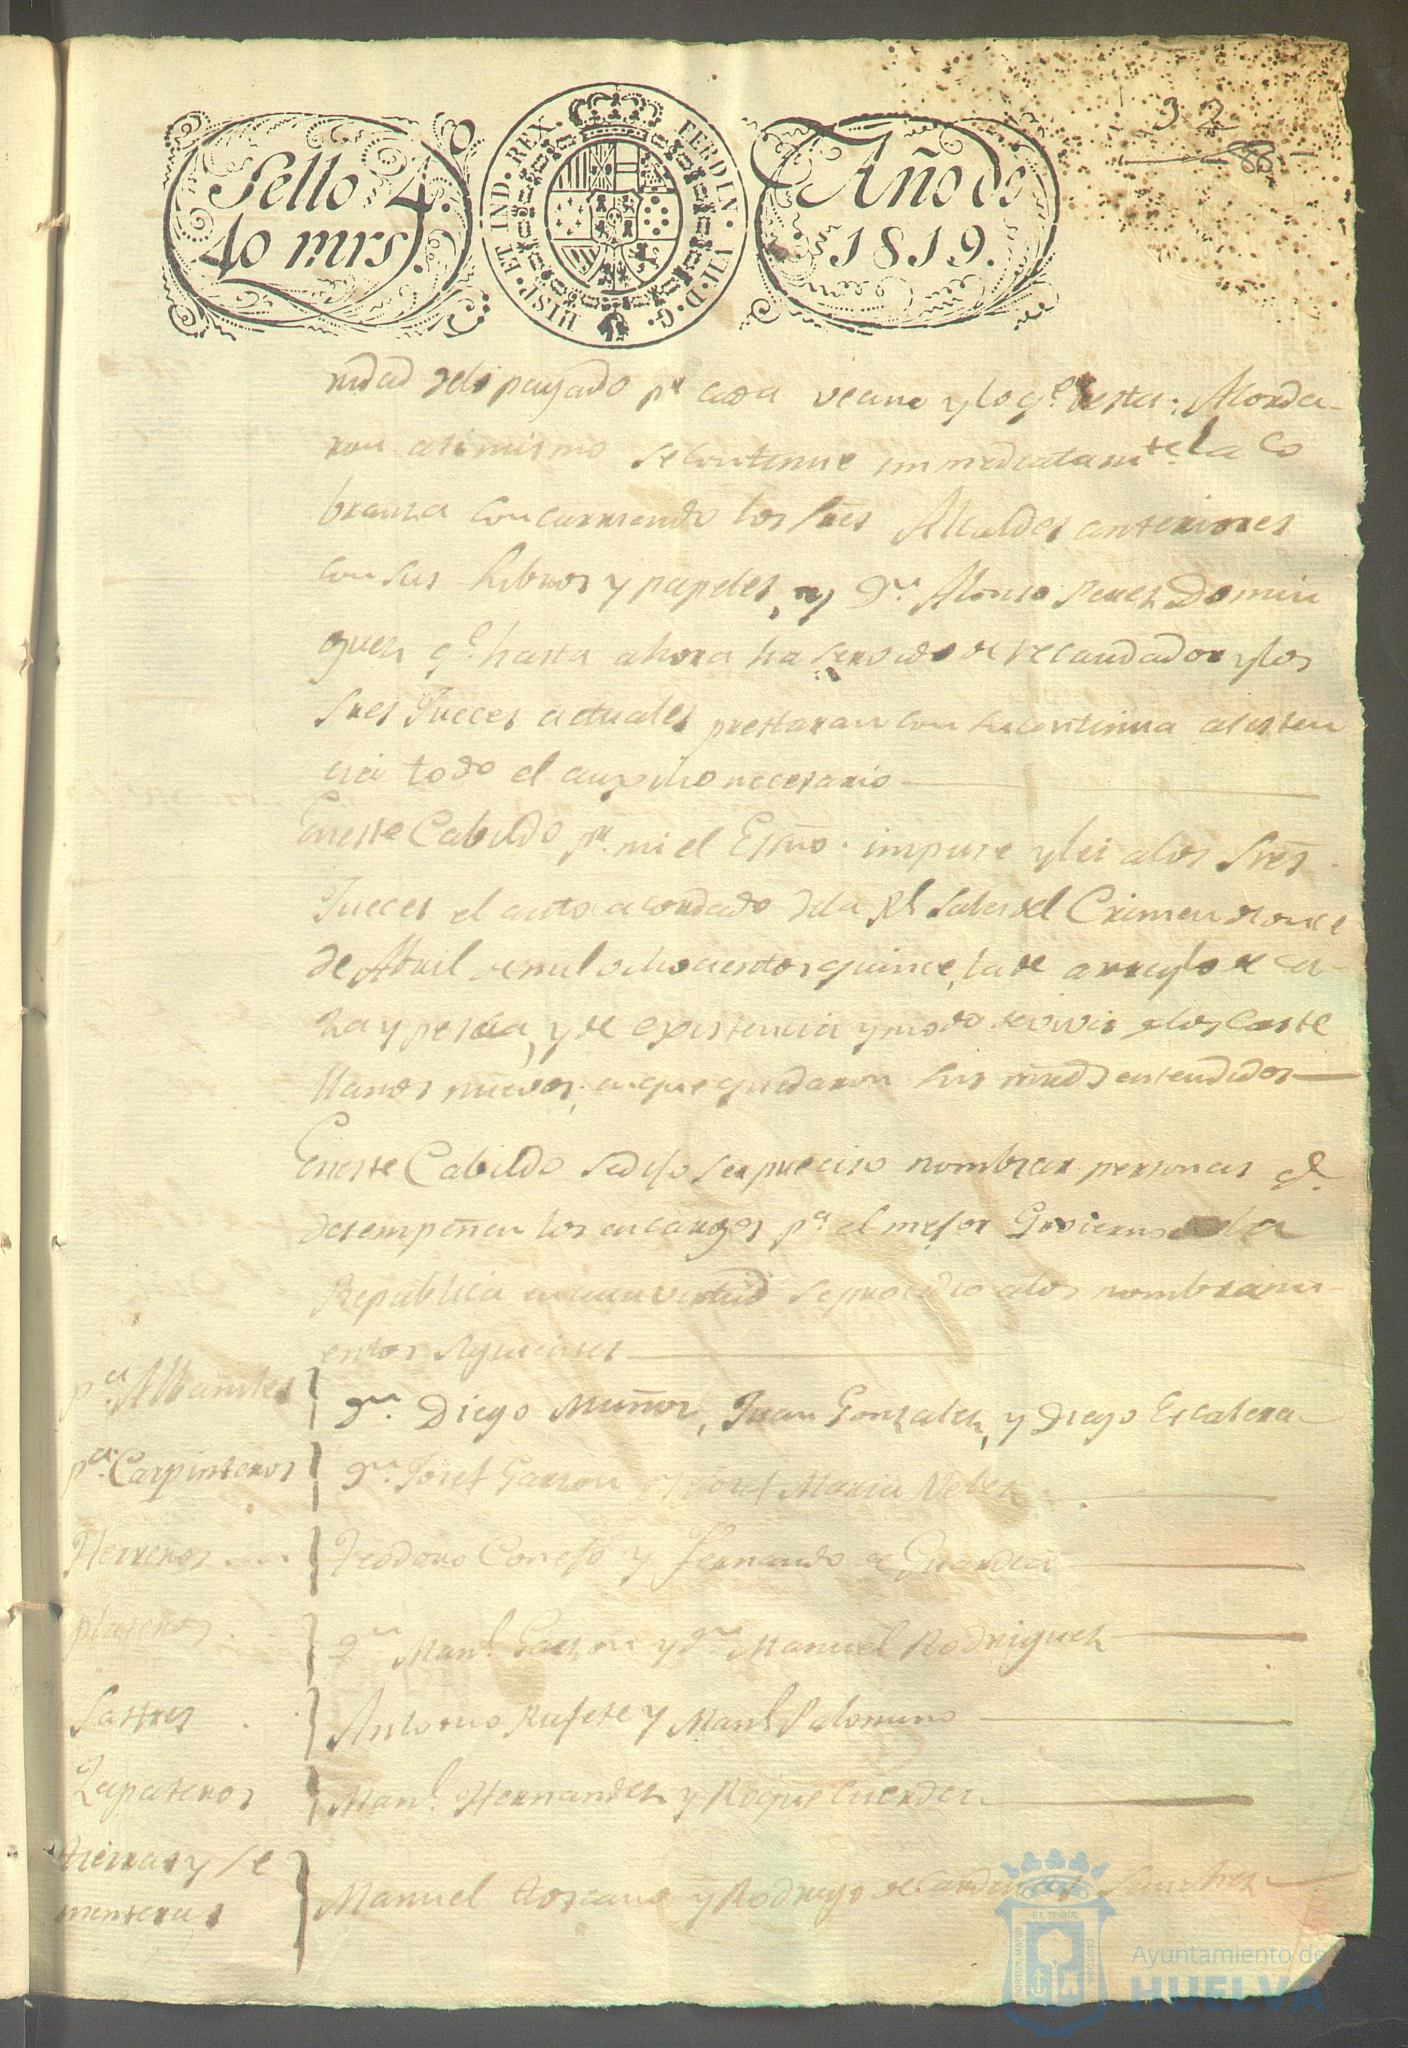 32
8
Sello 4.
40 mrs.
HISP. ET IND. REX. FERDIN. VII. D. G.
Año de
1819.
ridad de lo pagado pr. cada vecino y lo q.e resta; Acorda-
ron asimismo se continue immediatamte. la co
branza concurriendo los Sres Alcaldes anteriores
con sus Libros y papeles, y Dn. Alonso Perez Domin
guez q.e hasta ahora ha servido de recaudador y los
Sres Jueces actuales prestaran con su continua asisten
cia todo el auxilio necesario
En este Cabildo pr. mi el Essno. impuse y lei a los Sres
Jueces el auto acordado de la Rl. Sala del Crimen de once
de Abril de mil ochocientos quince, la de arreglo de ca-
za y pesca, y de existencia y modo de vivir de los caste
llanos nuevos; a que quedaron sus mrds entendidos
En este Cabildo se dijo ser preciso nombrar personas q.e
desempeñen los encargos pa. el mejor Govierno de la
Republica en cuya virtud se procedio a los nombrami-
entos siguientes
pa. Albañiles } Dn. Diego Muñoz, Juan Gonzalez, y Diego Escalera
pa. Carpinteros } Dn. Josef Garzon y Josef Maria Velez
Herreros } Teodoro Conejo y Fernando de Guardia
plateros } Dn. Manl. Garzon y Dn. Manuel Rodriguez
Sastres } Antonio Rufete y Manl. Palomino
Zapateros } Manl. Hernandez y Roque Cuerda
tierras y se
menteras } Manuel Toscano y Rodrigo de Cardenas Sanchez
Ayuntamiento de
HUELVA